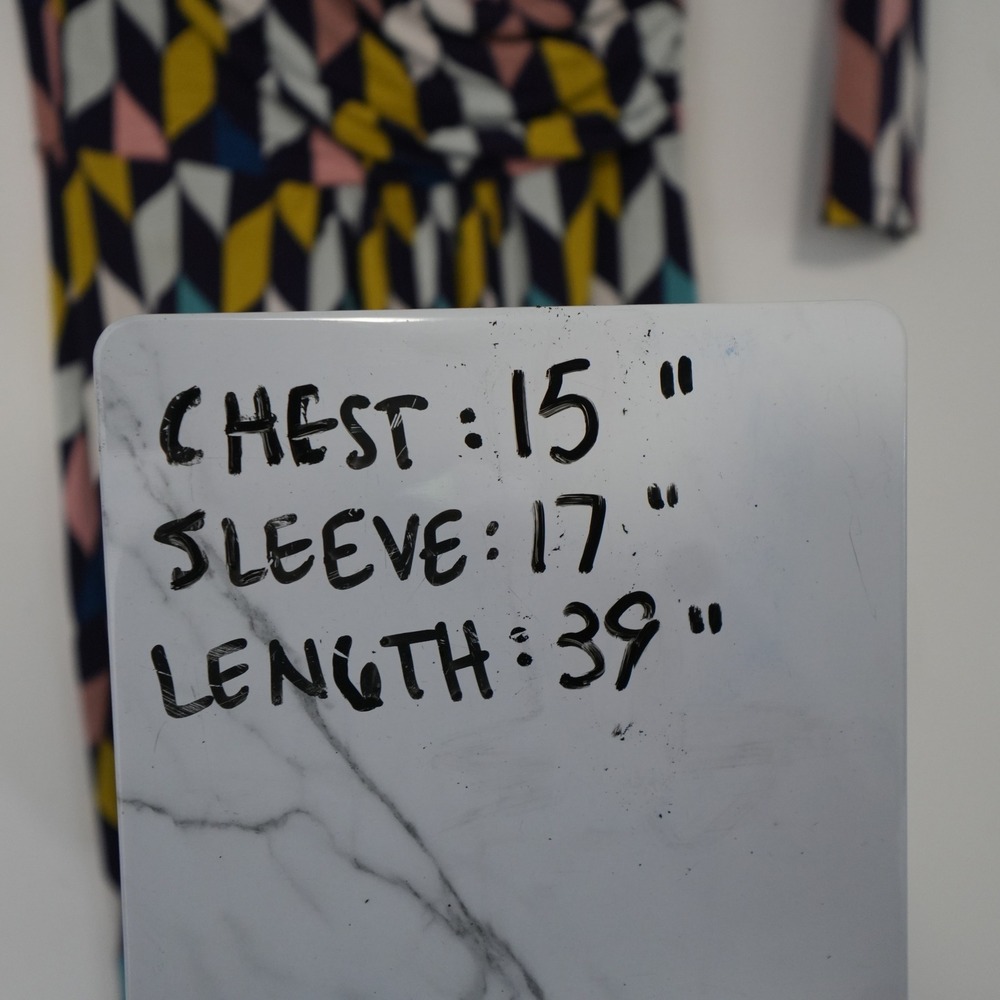 CHEST: 15"
SLEEVE: 17"
LENGTH: 39"